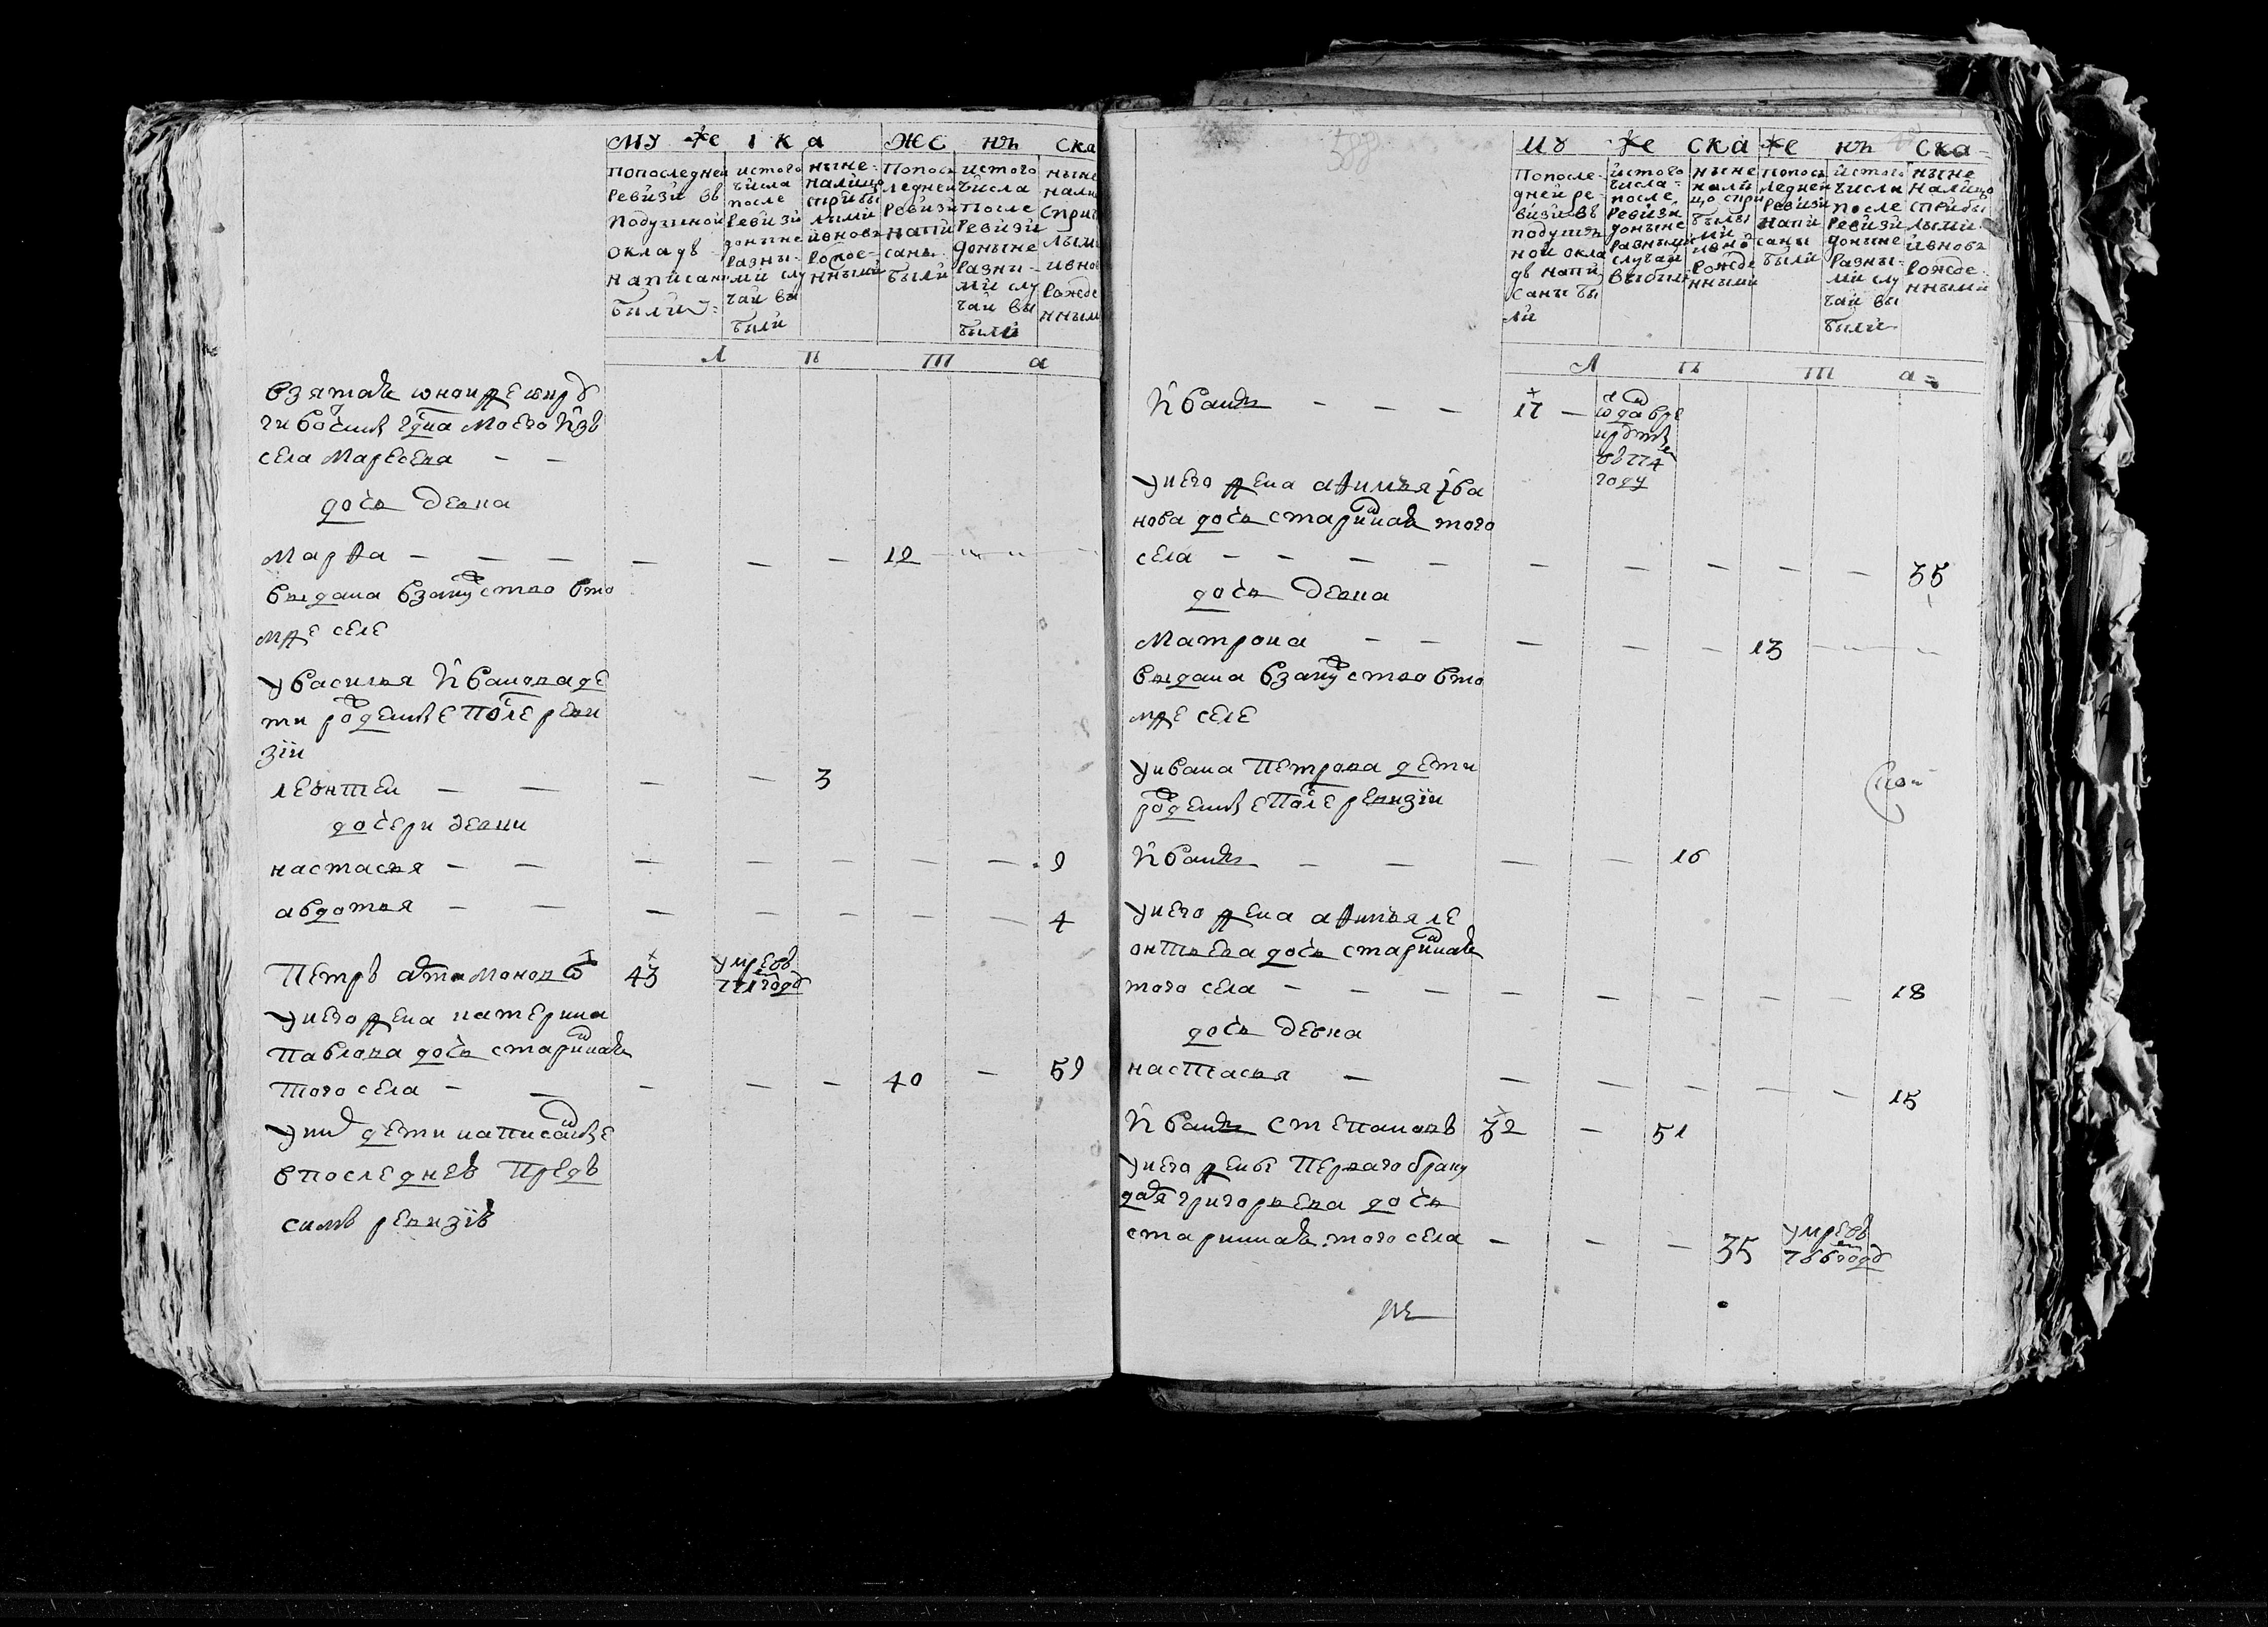 му же ска
же нъ ска
По последней ревизи въ подушной окладъ написаны были
ис того числа после ревизи доныне разными случаи выбыли
ныне налицо с прибылыми и вновь рожденными
По последней ревизи написаны были
ис того числа после ревизи доныне разными случаи выбыли
ныне нали с при лыми и вно рожде нным
Л ѣ т а
взятая
села
дочь девка
Марфа 12
выдана взамужство вто
мже селе
у василья Иванова де
ти рожденные после реви
зiи
леонтеи 3
дочери девки
настасья 9
авдотья 4
Петръ Артамоновъ 43 умре въ 771 году
у него жена катерина
Павлова дочь старинная
того села 40 59
у них дети написанные
в последней предъ
симъ ревизiи
588
му же ска же нъ ска
По последней ревизи въ подушной окладъ написаны были
ис того числа после ревизи доныне разными случаи выбыли
ныне налицо с прибылыми и вновь рожденными
По последней ревизи написаны были
ис того числа после ревизи доныне разными случаи выбыли
ныне налицо с прибылыми и вновь рожденными
Л ѣ т а
Иванъ 17 отдан в рекруты въ 774 году
у него жена афимья Ива
нова дочь старинная того
села 35
дочь девка
Матрона 13
выдана взамужство вто
мже селе
у ивана Петрова дети
рожденные после ревизiи
Иванъ 16
у него жена афимья ле
онтьева дочь старинная
того села 18
дочь девка
настасья 15
Иванъ Степановъ 32 51
у него жены перваго браку
дарья григорьева дочь
старинная того села 35 умре въ 766 году